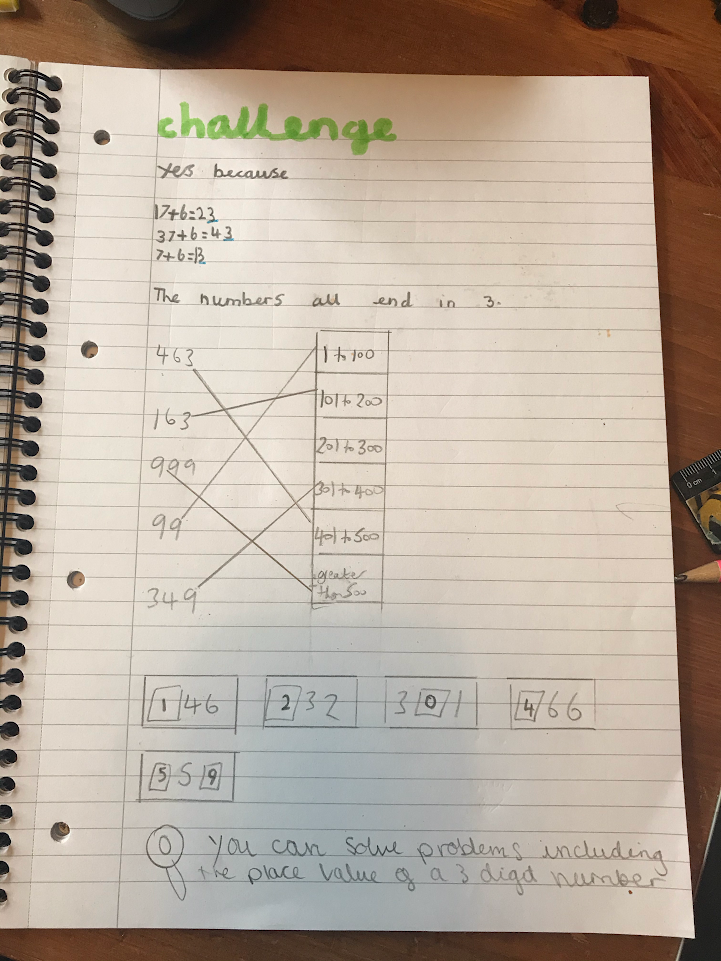 challenge
Yes because
17+6=23
37+6=43
7+6=13
The numbers all end in 3.
463
1 to 100
163
101 to 200
201 to 300
999
301 to 400
99
401 to 500
greater
than 500
349
146 232 301 466
559
You can solve problems including
the place value of a 3 digd number.
0 cm 1